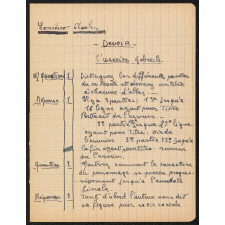 Devoir
L'usurier Gobseck
Questions 1 Distinguez les différentes parties
de ce texte et donnez un titre
à chacune d'elles.
Réponse 1 Il y a 3 parties: 1re jusqu'à
18 ligne ayant pour Titre
Portrait de l'usurier
2e partie jusqu'à ligne
ayant pour Titre: vie de
l'usurier 3e partie jusqu'à
la fin ayant pour titre:
de l'usurier.
Question 2 Montrez comment le caractère
du personnage se précise progres-
sivement jusqu'à l'anecdote
finale.
Réponse 2 Tout d'abord l'auteur nous dit
sa figure puis sa vie sociale